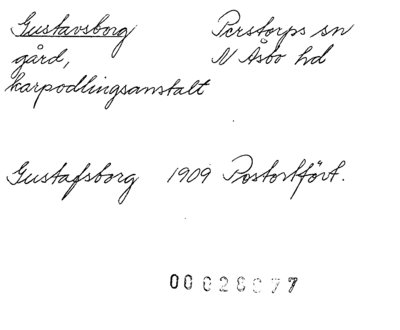 Gustavsborg Perstorps sn
gård, N Åsbo hd
karpodlingsanstalt
Gustafsborg 1909 Postortfört.